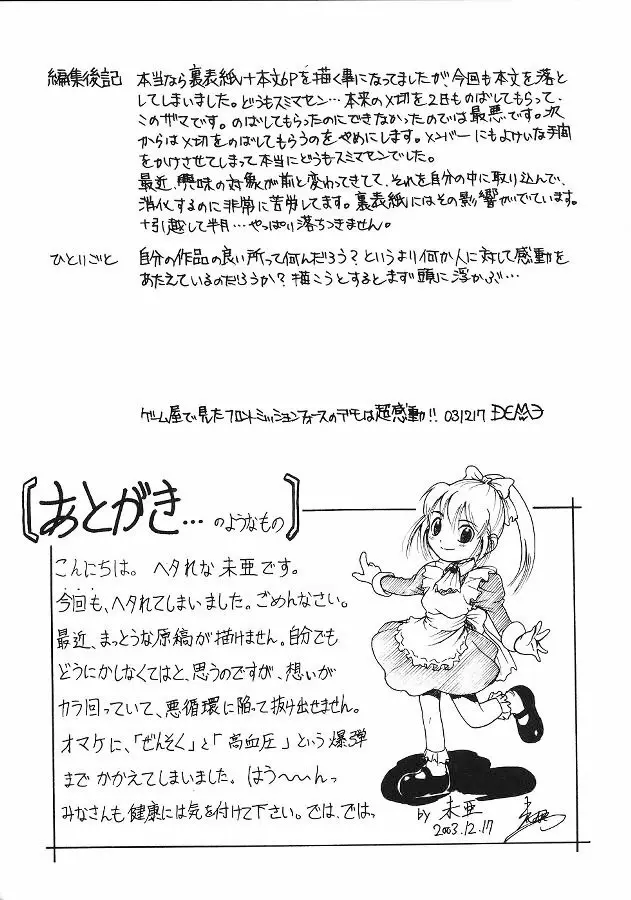 編集後記 本当なら裏表紙+本文6Pを描く事になってましたが、今回も本文を落と
してしまいました。どうもスミマセン…本来の〆切を2日ものばしてもらって、
このザマです。のばしてもらったのにできなかったのでは最悪です。次
からは〆切をのばしてもらうのをやめにします。メンバーにもよけいな手間
をかけさせてしまって本当にどうもスミマセンでした。
最近、興味の対象が前と変わってきてて、それを自分の中に取り込んで、
消化するのに非常に苦労してます。裏表紙にはその影響がでています。
+引越して半月…やっぱり落ちつきません。
ひとりごと 自分の作品の良い所って何んだろう?というより何か人に対して感動を
あたえているのだろうか?描こうとするとまず頭に浮かぶ…
ゲーム屋で見たフロントミッションフォースのデモは超感動!! 031217
[あとがき…のようなもの]
こんにちは。ヘタれな未亜です。
今回も、ヘタれてしまいました。ごめんなさい。
最近、まっとうな原稿が描けません。自分でも
どうにかしなくてはと、思うのですが、想いが
カラ回っていて、悪循環に陥って抜け出せません。
オマケに、「ぜんそく」と「高血圧」という爆弾
までかかえてしまいました。はう〜〜んっ
みなさんも健康には気を付けて下さい。では、では。
by 未亜
2003.12.17